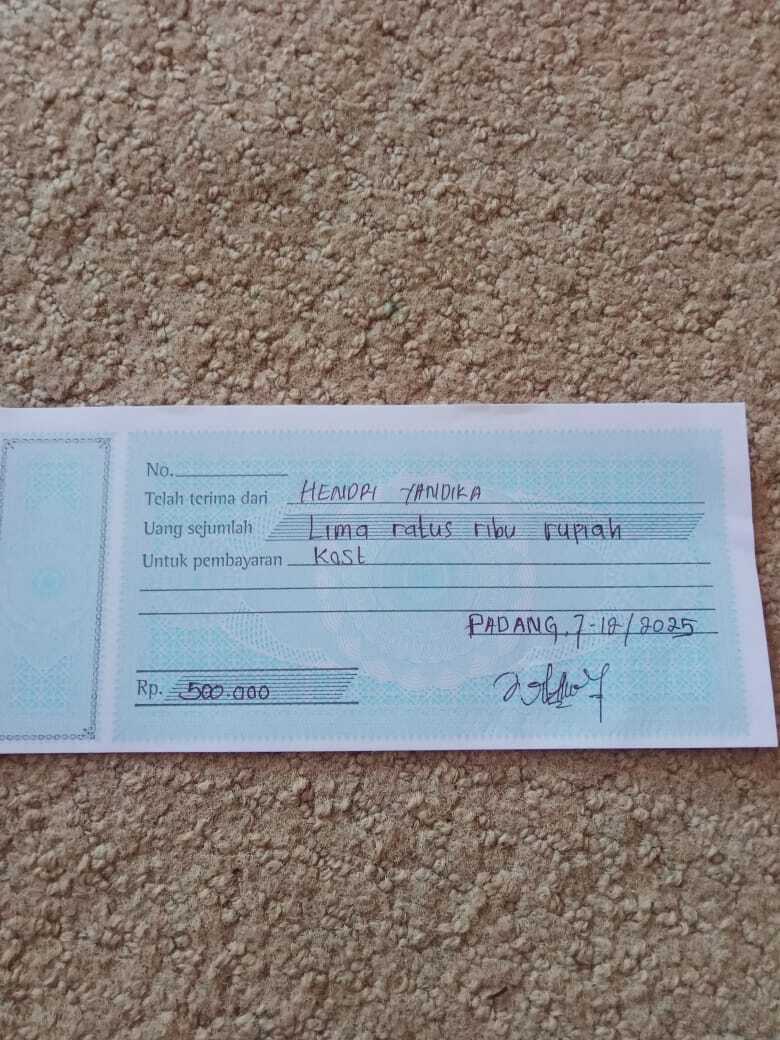 No.
Telah terima dari HENDRI YANDIKA
Uang sejumlah Lima ratus ribu rupiah
Untuk pembayaran Kost
PADANG, 7-12/2025
Rp. 500.000